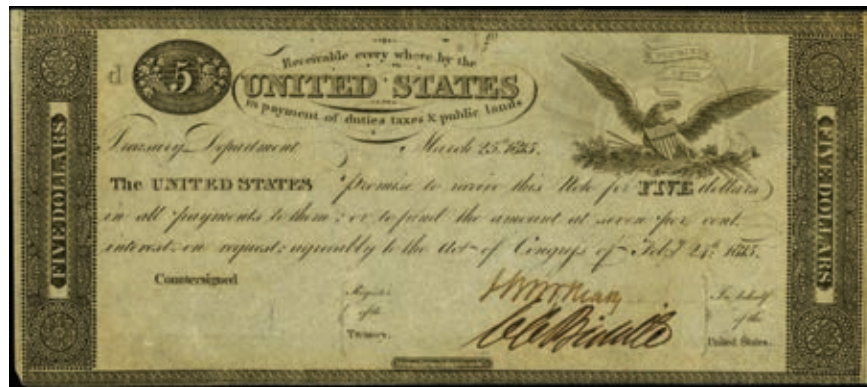 d 5
Receivable every where by the
UNITED STATES
in payment of duties taxes & public lands
Treasury Department, March 25th 1815.
The UNITED STATES promise to receive this Note for FIVE dollars
in all payments to them; or to fund the amount at seven per cent.
interest, on request; agreeably to the Act of Congress of Feby 24th 1815.
Countersigned
Register
of the
Treasury.
C C Biddle
In behalf
of the
United States.
FIVE DOLLARS
FIVE DOLLARS